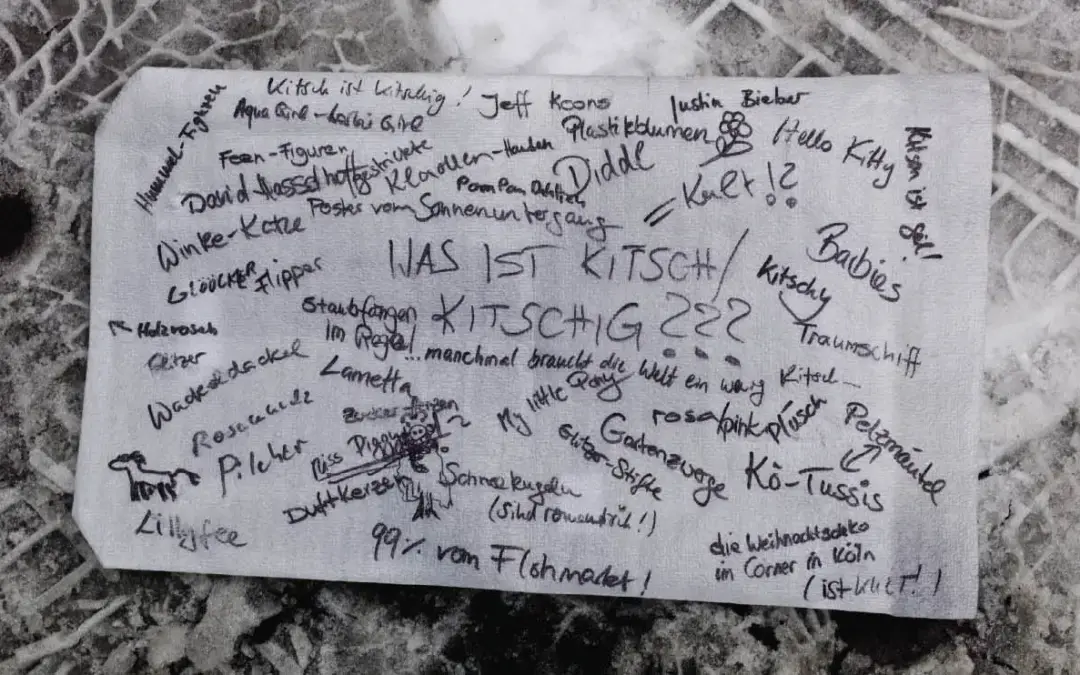 Kitsch ist kitschig!
Jeff Koons
Justin Bieber
Hummel-Figuren
Aqua Girl - Barbie Girl
Plastikblumen
Hello Kitty
Kitsch ist
Feen-Figuren
gestrickte Klorollen-Hauben
Diddl
= Kult!?
David Hasselhoff
PomPom
Poster vom Sonnenuntergang
Winke-Katze
WAS IST KITSCH/
KITSCHIG???
Barbies
Kitschy
Traumschiff
GLÖÖCKER
Flipper
Staubfänger
im Regal
Holzrosen
Glitzer
...manchmal braucht die Welt ein wenig Kitsch...
Wackeldackel
Lametta
My little Pony
rosa/pink plüsch
Pelzmäntel
Rosamunde
Pilcher
Miss Piggy
Glitzer-Stifte
Gartenzwerge
Kö-Tussis
Duftkerzen
Schneekugeln
(sind romantisch!)
Lillyfee
99% vom Flohmarkt!
die Weihnachtsdeko
im Corner in Köln
(ist KULT!)